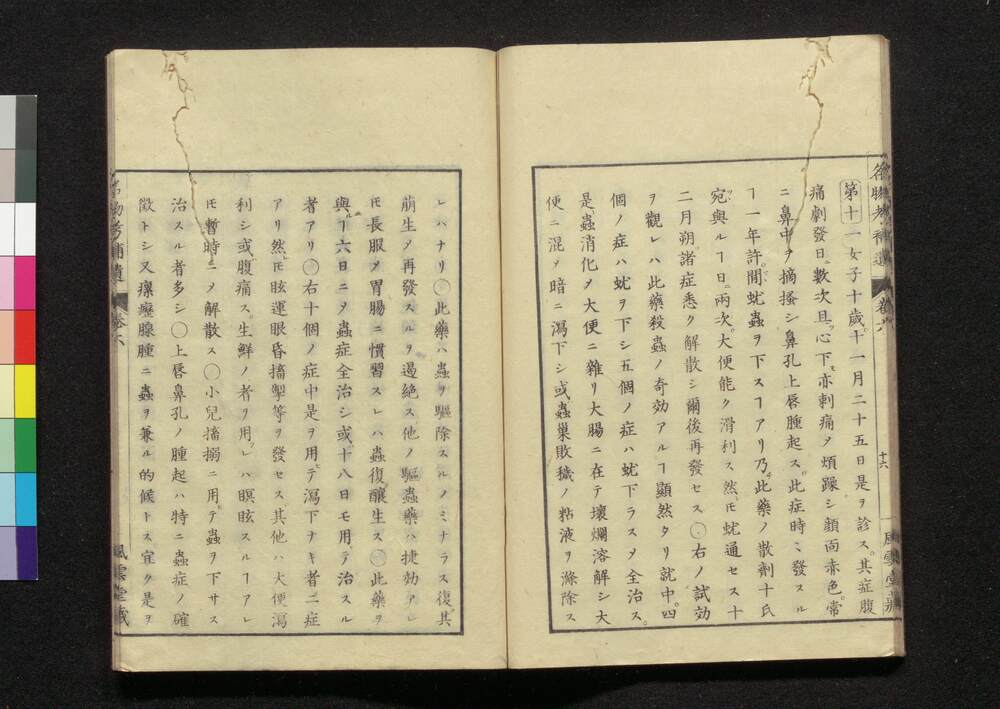 第十一女子十歳。十一月二十五日是ヲ診ス。其症腹
痛劇發日ニ數次且ツ心下モ亦刺痛〆煩躁シ顔面赤色。常
ニ鼻中ヲ摘搔シ鼻孔上唇腫起ス。此症時々發スル
ヿ一年許。間蚘蟲ヲ下スヿアリ乃此藥ノ散劑十氏
宛與ルヿ日ニ兩次。大便能ク滑利ス。然ㇳモ蚘通セス十
二月朔。諸症悉ク解散シ爾後再發セス〇右ノ試効
ヲ觀レハ此藥殺蟲ノ奇効アルヿ顯然タリ就中。四
個ノ症ハ蚘ヲ下シ五個ノ症ハ蚘下ラス〆全治ス。
是蟲消化〆大便ニ雜リ大腸ニ在テ壞爛溶解シ大
便ニ混〆暗ニ瀉下シ或蟲巢敗穢ノ粘液ヲ滌除ス
十六
風雲堂藏
レハナリ〇此藥ハ蟲ヲ驅除スルノミナラス復其
萠生〆再發スルヲ遏絶ス他ノ驅蟲藥ハ捷効アレ
ㇳモ長服〆胃腸ニ慣習スレハ蟲復釀生ス〇此藥ヲ
與ルヿ六日ニ〆蟲症全治シ或十八日モ用テ治スル
者アリ〇右十個ノ症中是ヲ用テ瀉下ナキ者二症
アリ然ㇳモ眩運眼昏搐掣等ヲ發セス其他ハ大便瀉
利シ或腹痛ス。生鮮ノ者ヲ用レハ瞑眩スルヿアレ
ㇳモ暫時ニ〆解散ス〇小兒搐搦ニ用テ蟲ヲ下サス
治スル者多シ〇上唇鼻孔ノ腫起ハ特ニ蟲症ノ確
徴トシ又瘰癧腺腫ニ蟲ヲ兼ル的候トス宜ク是ヲ
風雲堂藏